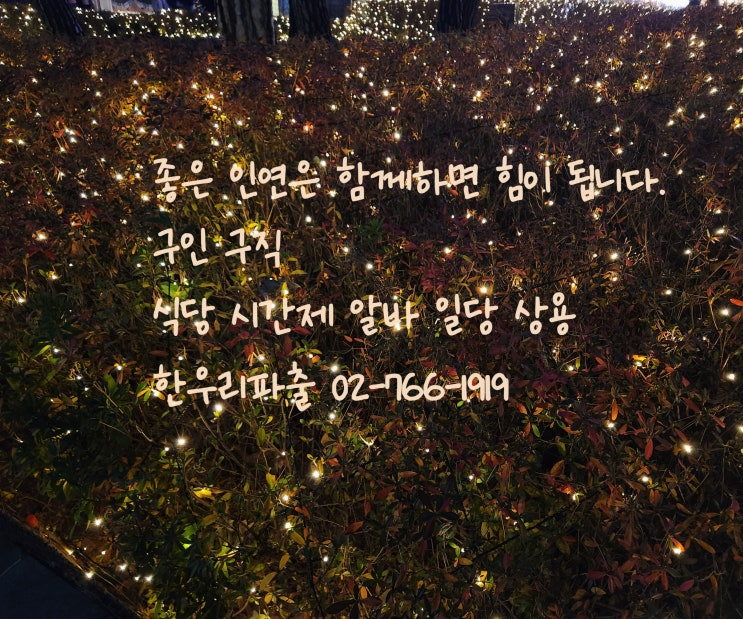 좋은 인연은 함께하면 힘이 됩니다.
구인 구직
식당 시간제 알바 일당 상용
한우리파출 02-766-1919